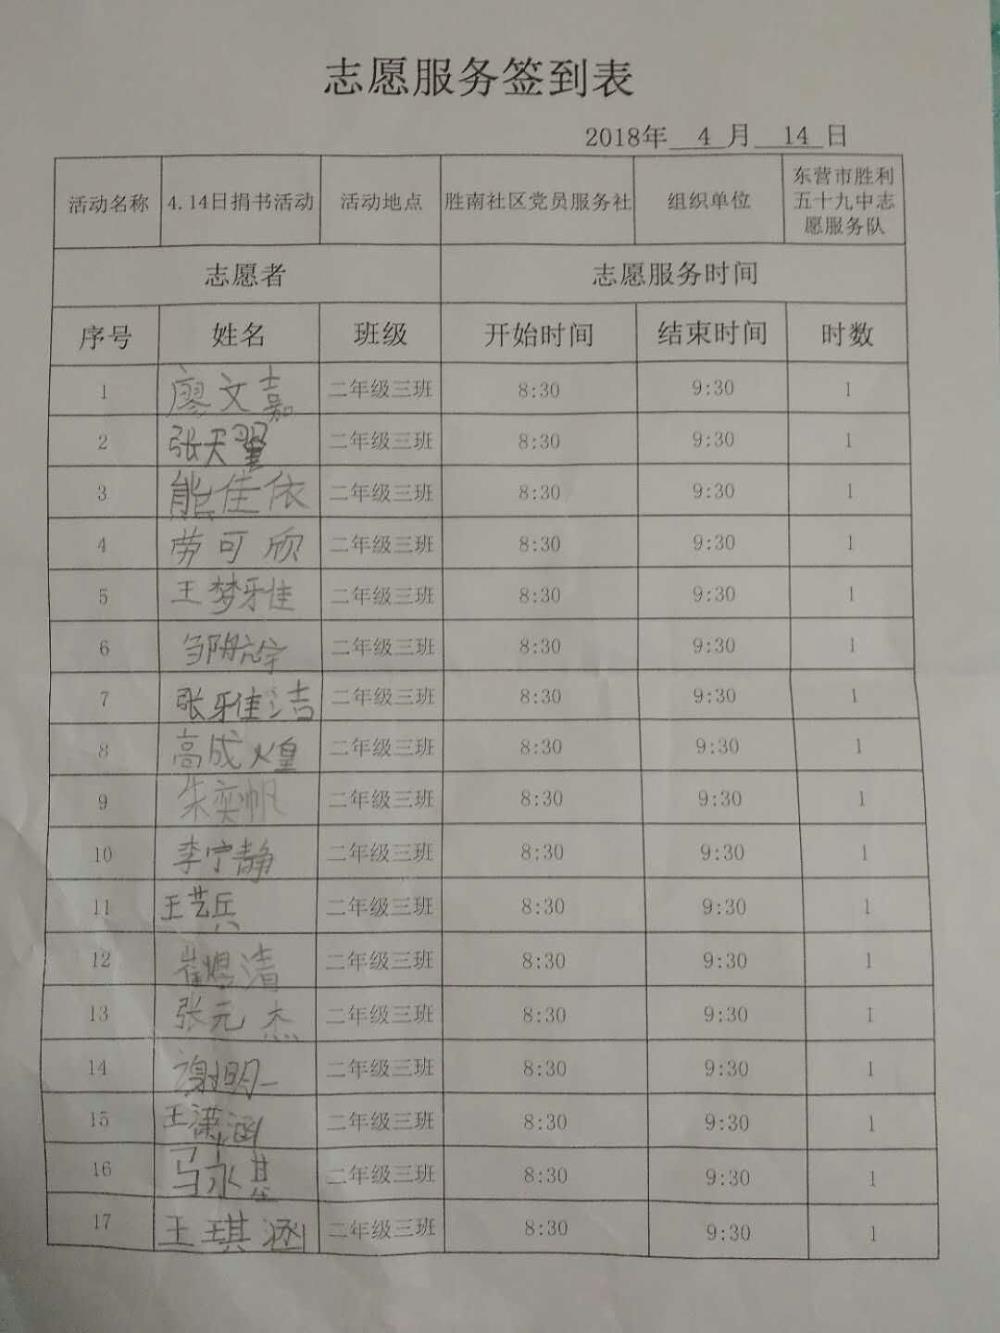 志愿服务签到表
2018年 4 月 14 日
活动名称 4.14日捐书活动 活动地点 胜南社区党员服务社 组织单位 东营市胜利五十九中志愿服务队
志愿者 志愿服务时间
序号 姓名 班级 开始时间 结束时间 时数
1 廖文嘉 二年级三班 8:30 9:30 1
2 张天翼 二年级三班 8:30 9:30 1
3 熊佳依 二年级三班 8:30 9:30 1
4 劳可欣 二年级三班 8:30 9:30 1
5 王梦雅 二年级三班 8:30 9:30 1
6 邹航宇 二年级三班 8:30 9:30 1
7 张雅洁 二年级三班 8:30 9:30 1
8 高成煌 二年级三班 8:30 9:30 1
9 朱奕帆 二年级三班 8:30 9:30 1
10 李宁静 二年级三班 8:30 9:30 1
11 王艺兵 二年级三班 8:30 9:30 1
12 崔煜清 二年级三班 8:30 9:30 1
13 张元杰 二年级三班 8:30 9:30 1
14 谢明一 二年级三班 8:30 9:30 1
15 王潇涵 二年级三班 8:30 9:30 1
16 马永基 二年级三班 8:30 9:30 1
17 王琪涵 二年级三班 8:30 9:30 1